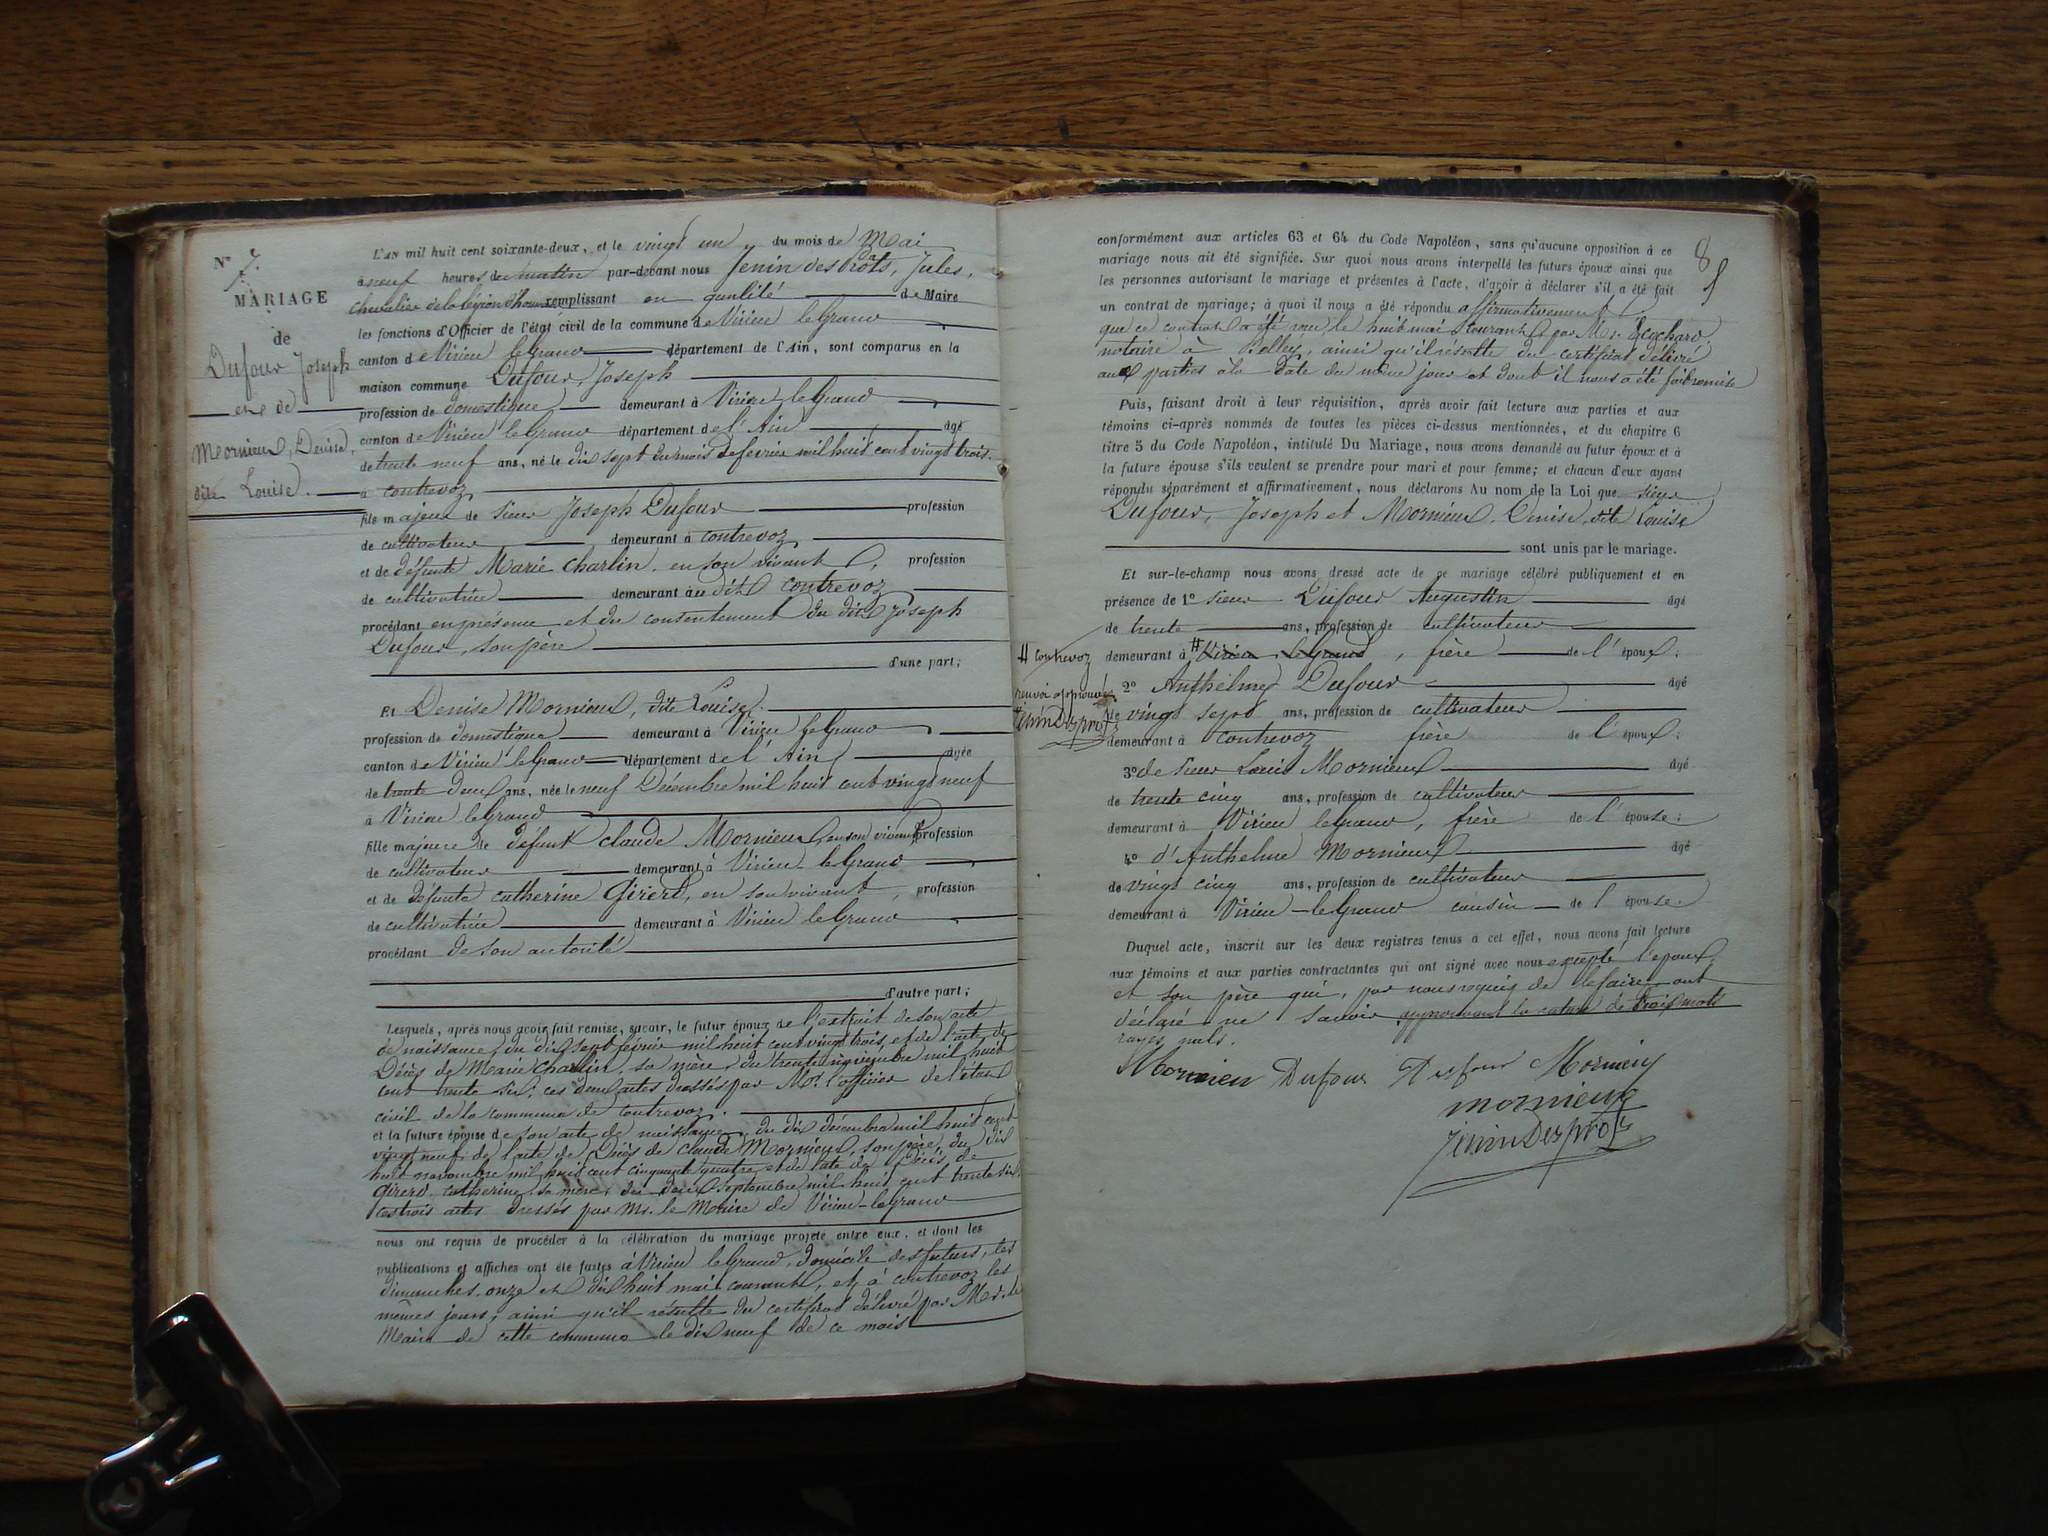 N° 7.
MARIAGE
de
Dufour Joseph
et de
Mornieux, Denise,
dite Louise.
L'AN mil huit cent soixante-deux, et le vingt un du mois de Mai
à neuf heures du matin par-devant nous Jenin des prots, Jules,
chevalier de la légion d'honneur remplissant en qualité de Maire
les fonctions d'Officier de l'état civil de la commune de Virieu le Grand
canton de Virieu le Grand département de l'Ain, sont comparus en la
maison commune Dufour, Joseph
profession de domestique demeurant à Virieu le Grand
canton de Virieu le Grand département de l'Ain âgé
de trente neuf ans, né le dix sept du mois de février mil huit cent vingt trois.
à contrevoz
fils majeur de sieur Joseph Dufour profession
de cultivateur demeurant à contrevoz
et de défunte Marie Charlin, en son vivant, profession
de cultivatrice demeurant au dit contrevoz
procédant en présence et du consentement du dit Joseph
Dufour, son père
d'une part;
Et Denise Mornieux, dite Louise.
profession de domestique demeurant à Virieu le Grand
canton de Virieu le Grand département de l'Ain âgée
de trente deux ans, née le neuf Décembre mil huit cent vingt neuf
à Virieu le Grand
fille majeure de défunt claude Mornieux, en son vivant profession
de cultivateur demeurant à Virieu le Grand
et de défunte catherine Girerd, en son vivant, profession
de cultivatrice demeurant à Virieu le Grand
procédant de son autorité
d'autre part;
Lesquels, après nous avoir fait remise, savoir, le futur époux de l'extrait de son acte
de naissance, du dix sept février mil huit cent vingt trois, et de l'acte de
Décès de Marie Charlin, sa mère, du trente mil huit
cent trente six; ces deux actes dressés par Mr. l'officier de l'état
civil de la commune de contrevoz.
et la future épouse de son acte de naissance, du dix décembre mil huit cent
vingt neuf, de l'acte de Décès de claude Mornieux, son père, du dix
huit novembre mil huit cent cinquante quatre et de l'acte de Décès de
Girerd catherine, sa mère, du deux septembre mil huit cent trente six,
ces trois actes dressés par Mr. le Maire de Virieu-le Grand
nous ont requis de procéder à la célébration du mariage projeté entre eux, et dont les
publications et affiches ont été faites à Virieu le Grand, domicile des futurs, les
dimanches onze et dix huit mai courant, et à contrevoz les
mêmes jours, ainsi qu'il résulte du certificat délivré par Mr. le
Maire de cette commune le dix neuf de ce mois
8
conformément aux articles 63 et 64 du Code Napoléon, sans qu'aucune opposition à ce
mariage nous ait été signifiée. Sur quoi nous avons interpellé les futurs époux ainsi que
les personnes autorisant le mariage et présentes à l'acte, d'avoir à déclarer s'il a été fait
un contrat de mariage; à quoi il nous a été répondu affirmativement
que ce contrat a été reçu le huit mai courant par Mr. Ecochard
notaire à Belley, ainsi qu'il résulte du certificat délivré
aux parties à la date du même jour et dont il nous a été fait remise
Puis, faisant droit à leur réquisition, après avoir fait lecture aux parties et aux
témoins ci-après nommés de toutes les pièces ci-dessus mentionnées, et du chapitre 6
titre 5 du Code Napoléon, intitulé Du Mariage, nous avons demandé au futur époux et à
la future épouse s'ils veulent se prendre pour mari et pour femme; et chacun d'eux ayant
répondu séparément et affirmativement, nous déclarons Au nom de la Loi que sieur
Dufour, Joseph et Mornieux, Denise, dite Louise
sont unis par le mariage.
Et sur-le-champ nous avons dressé acte de ce mariage célébré publiquement et en
présence de 1° sieur Dufour Augustin âgé
de trente ans, profession de cultivateur
demeurant à # Virieu le Grand, frère de l'époux;
# contrevoz
renvoi approuvé
Jenin Desprots
2° Anthelme Dufour âgé
de vingt sept ans, profession de cultivateur
demeurant à contrevoz frère de l'époux;
3° de sieur Louis Mornieux âgé
de trente cinq ans, profession de cultivateur
demeurant à Virieu le Grand, frère de l'épouse;
4° d'Anthelme Mornieux âgé
de vingt cinq ans, profession de cultivateur
demeurant à Virieu-le Grand cousin de l'épouse.
Duquel acte, inscrit sur les deux registres tenus à cet effet, nous avons fait lecture
aux témoins et aux parties contractantes qui ont signé avec nous excepté l'époux
et son père qui, par nous requis de le faire, ont
déclaré ne savoir approuvant la rature de trois mots
rayés nuls.
Mornieu Dufour Dufour Mornieux
mornieux
Jenin Desprots